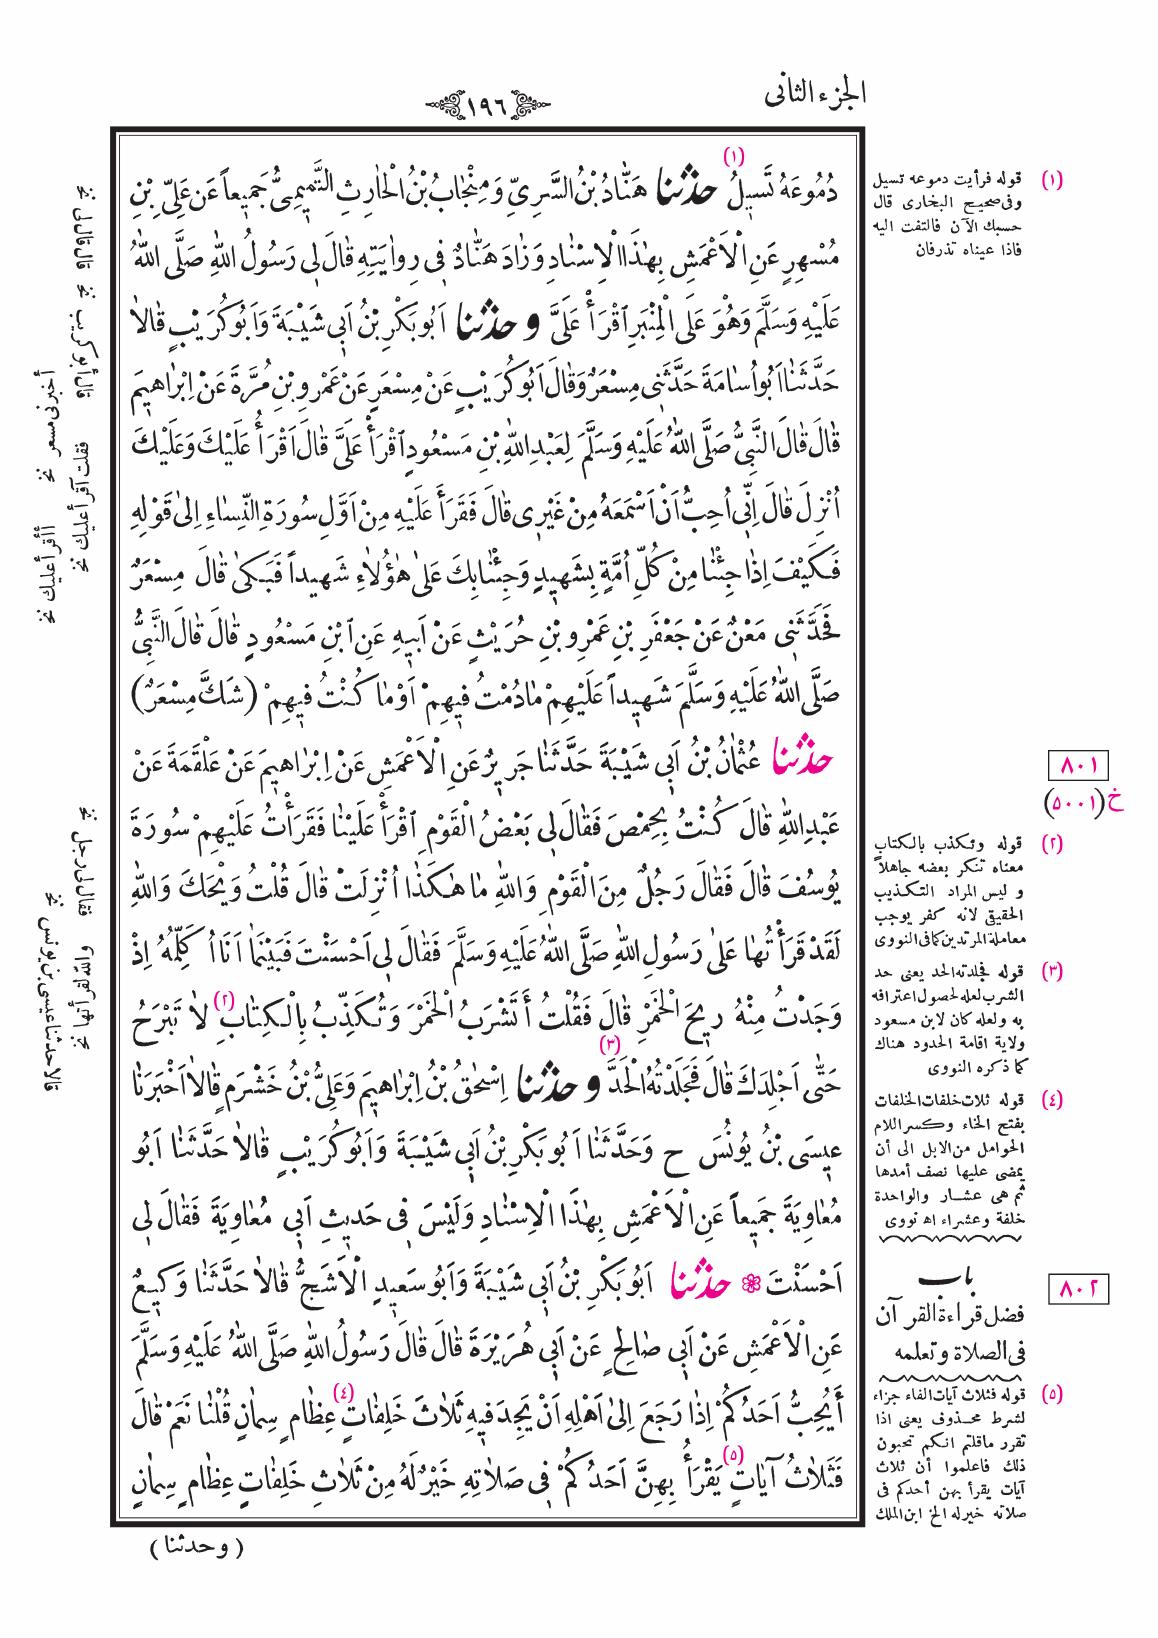 الجزء الثانى
١٩٦
دُمُوعَهُ تَسيلُ (١) حدثنا هَنَّادُ بْنُ السَّرِيِّ وَمِنْجَابُ بْنُ الْحَارِثِ التَّمِيمِىُّ جَمِيعاً عَن عَلِيِّ بْنِ
مُسْهِرٍ عَنِ الْاَعْمَشِ بِهٰذَا الْاِسْنَادِ وَزَادَ هَنَّادٌ فِى رِوَايَتِهِ قَالَ لِى رَسُولُ اللهِ صَلَّى اللهُ
عَلَيْهِ وَسَلَّمَ وَهُوَ عَلَى الْمِنْبَرِ اِقْرَأْ عَلَىَّ و حدثنا اَبُو بَكْرِ بْنُ اَبِى شَيْبَةَ وَاَبُو كُرَيْبٍ قَالَا
حَدَّثَنَا اَبُو اُسَامَةَ حَدَّثَنِى مِسْعَرٌ وَقَالَ اَبُو كُرَيْبٍ عَنْ مِسْعَرٍ عَنْ عَمْرِو بْنِ مُرَّةَ عَنْ اِبْرَاهِيمَ
قَالَ قَالَ النَّبِىُّ صَلَّى اللهُ عَلَيْهِ وَسَلَّمَ لِعَبْدِ اللهِ بْنِ مَسْعُودٍ اِقْرَأْ عَلَىَّ قَالَ اَقْرَأُ عَلَيْكَ وَعَلَيْكَ
اُنْزِلَ قَالَ اِنِّى اُحِبُّ اَنْ اَسْمَعَهُ مِنْ غَيْرِى قَالَ فَقَرَأَ عَلَيْهِ مِنْ اَوَّلِ سُورَةِ النِّسَاءِ اِلىٰ قَوْلِهِ
فَكَيْفَ اِذَا جِئْنَا مِنْ كُلِّ اُمَّةٍ بِشَهِيدٍ وَجِئْنَا بِكَ عَلىٰ هٰؤُلَاءِ شَهِيداً فَبَكىٰ قَالَ مِسْعَرٌ
فَحَدَّثَنِى مَعْنٌ عَنْ جَعْفَرِ بْنِ عَمْرِو بْنِ حُرَيْثٍ عَنْ اَبِيهِ عَنِ ابْنِ مَسْعُودٍ قَالَ قَالَ النَّبِىُّ
صَلَّى اللهُ عَلَيْهِ وَسَلَّمَ شَهِيداً عَلَيْهِمْ مَا دُمْتُ فِيهِمْ اَوْ مَا كُنْتُ فِيهِمْ (شَكَّ مِسْعَرٌ)
حدثنا عُثْمَانُ بْنُ اَبِى شَيْبَةَ حَدَّثَنَا جَرِيرٌ عَنِ الْاَعْمَشِ عَنْ اِبْرَاهِيمَ عَنْ عَلْقَمَةَ عَنْ
عَبْدِ اللهِ قَالَ كُنْتُ بِحِمْصَ فَقَالَ لِى بَعْضُ الْقَوْمِ اِقْرَأْ عَلَيْنَا فَقَرَأْتُ عَلَيْهِمْ سُورَةَ
يُوسُفَ قَالَ فَقَالَ رَجُلٌ مِنَ الْقَوْمِ وَاللهِ مَا هٰكَذَا اُنْزِلَتْ قَالَ قُلْتُ وَيْحَكَ وَاللهِ
لَقَدْ قَرَأْتُهَا عَلىٰ رَسُولِ اللهِ صَلَّى اللهُ عَلَيْهِ وَسَلَّمَ فَقَالَ لِى اَحْسَنْتَ فَبَيْنَمَا اَنَا اُكَلِّمُهُ اِذْ
وَجَدْتُ مِنْهُ رِيحَ الْخَمْرِ قَالَ فَقُلْتُ أَتَشْرَبُ الْخَمْرَ وَتُكَذِّبُ بِالْكِتَابِ (٢) لَا تَبْرَحُ
حَتّٰى اَجْلِدَكَ قَالَ فَجَلَدْتُهُ الْحَدَّ (٣) و حدثنا اِسْحٰقُ بْنُ اِبْرَاهِيمَ وَعَلِىُّ بْنُ خَشْرَمٍ قَالَا اَخْبَرَنَا
عِيسَى بْنُ يُونُسَ ح وَحَدَّثَنَا اَبُو بَكْرِ بْنُ اَبِى شَيْبَةَ وَاَبُو كُرَيْبٍ قَالَا حَدَّثَنَا اَبُو
مُعَاوِيَةَ جَمِيعاً عَنِ الْاَعْمَشِ بِهٰذَا الْاِسْنَادِ وَلَيْسَ فِى حَدِيثِ اَبِى مُعَاوِيَةَ فَقَالَ لِى
اَحْسَنْتَ ❁ حدثنا اَبُو بَكْرِ بْنُ اَبِى شَيْبَةَ وَاَبُو سَعِيدٍ الْاَشَجُّ قَالَا حَدَّثَنَا وَكِيعٌ
عَنِ الْاَعْمَشِ عَنْ اَبِى صَالِحٍ عَنْ اَبِى هُرَيْرَةَ قَالَ قَالَ رَسُولُ اللهِ صَلَّى اللهُ عَلَيْهِ وَسَلَّمَ
أَيُحِبُّ اَحَدُكُمْ اِذَا رَجَعَ اِلىٰ اَهْلِهِ اَنْ يَجِدَ فِيهِ ثَلَاثَ خَلِفَاتٍ (٤) عِظَامٍ سِمَانٍ قُلْنَا نَعَمْ قَالَ
فَثَلَاثُ آيَاتٍ (٥) يَقْرَأُ بِهِنَّ اَحَدُكُمْ فِى صَلَاتِهِ خَيْرٌ لَهُ مِنْ ثَلَاثِ خَلِفَاتٍ عِظَامٍ سِمَانٍ
( وحدثنا )
(١) قوله فرأيت دموعه تسيل
وفى صحيح البخارى قال
حسبك الآن فالتفت اليه
فاذا عيناه تذرفان
٨٠١
خ (٥٠٠١)
(٢) قوله وتكذب بالكتاب
معناه تنكر بعضه جاهلاً
و ليس المراد التكذيب
الحقيقى لانه كفر يوجب
معاملة المرتدين كما فى النووى
(٣) قوله فجلدته الحد يعنى حد
الشرب لعله لحصول اعترافه
به ولعله كان لابن مسعود
ولاية اقامة الحدود هناك
كما ذكره النووى
(٤) قوله ثلاث خلفات الخلفات
بفتح الخاء وكسر اللام
الحوامل من الابل الى أن
يمضى عليها نصف أمدها
ثم هى عشار والواحدة
خلفة وعشراء اه نووى
٨٠٢
باب
فضل قراءة القرآن
فى الصلاة وتعلمه
(٥) قوله فثلاث آيات الفاء جزاء
لشرط محذوف يعنى اذا
تقرر ما قلتم انكم تحبون
ذلك فاعلموا أن ثلاث
آيات يقرأ بهن أحدكم فى
صلاته خير له الخ ابن الملك
قال قال لى نخ
قال أبو كريب نخ
أخبرنى مسعر نخ
فقلت آقرأ عليك نخ
أأقرأ عليك نخ
فقال لى رجل نخ
والله لقرأتها نخ
قالا حدثنا عيسى بن يونس نخ